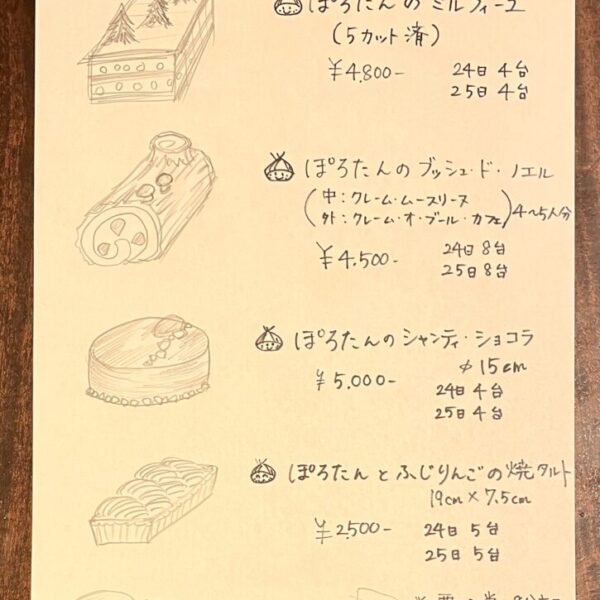 ぽろたんの ミルフィーユ
(5カット済)
¥4.800- 24日 4台
25日 4台
ぽろたんの ブッシュ・ド・ノエル
(中:クレーム・ムースリーヌ
外:クレーム・オ・ブール・カフェ) 4〜5人分
¥4.500- 24日 8台
25日 8台
ぽろたんの シャンティ・ショコラ
φ15cm
¥5.000- 24日 4台
25日 4台
ぽろたんと ふじりんごの焼タルト
19cm×7.5cm
¥2.500- 24日 5台
25日 5台